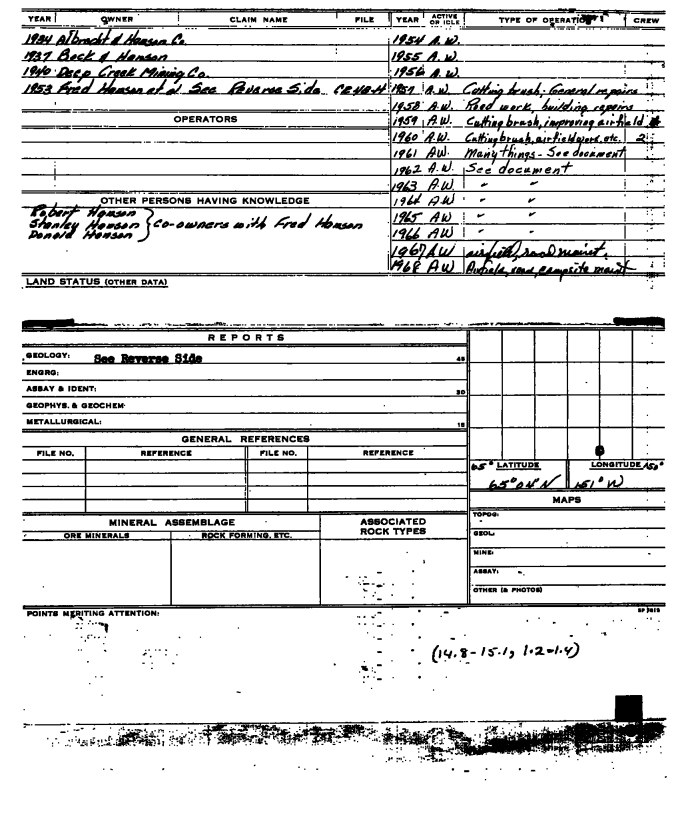 YEAR OWNER CLAIM NAME FILE YEAR ACTIVE OR IDLE TYPE OF OPERATION CREW
1934 Albrecht & Hanson Co. 1954 A.W.
1937 Beck & Hanson 1955 A.W.
1940 Deep Creek Mining Co. 1956 A.W.
1953 Fred Hanson et al See Reverse Side 1957 A.W. Cutting brush; General repairs
1958 A.W. Road work, building repairs
OPERATORS 1959 A.W. Cutting brush, improving airfield
1960 A.W. Cutting brush, airfield work, etc. 2
1961 A.W. Many things - See document
1962 A.W. See document
1963 A.W. " "
OTHER PERSONS HAVING KNOWLEDGE 1964 A.W. " "
Robert Hanson
Stanley Hanson } Co-owners with Fred Hanson 1965 A.W " "
Donald Hanson 1966 AW " "
1967 AW airfield, road maint.
1968 AW Airfield, road, campsite maint
LAND STATUS (OTHER DATA)
REPORTS
GEOLOGY: See Reverse Side 45
ENGRG:
ASSAY & IDENT: 30
GEOPHYS. & GEOCHEM:
METALLURGICAL: 15
GENERAL REFERENCES
FILE NO. REFERENCE FILE NO. REFERENCE
65° LATITUDE LONGITUDE 150°
65°04' N 151° W
MAPS
MINERAL ASSEMBLAGE ASSOCIATED ROCK TYPES
ORE MINERALS ROCK FORMING, ETC.
TOPOG:
GEOL:
MINE:
ASSAY:
OTHER (& PHOTOS)
POINTS MERITING ATTENTION:
(14.8-15.1, 1.2-1.4)